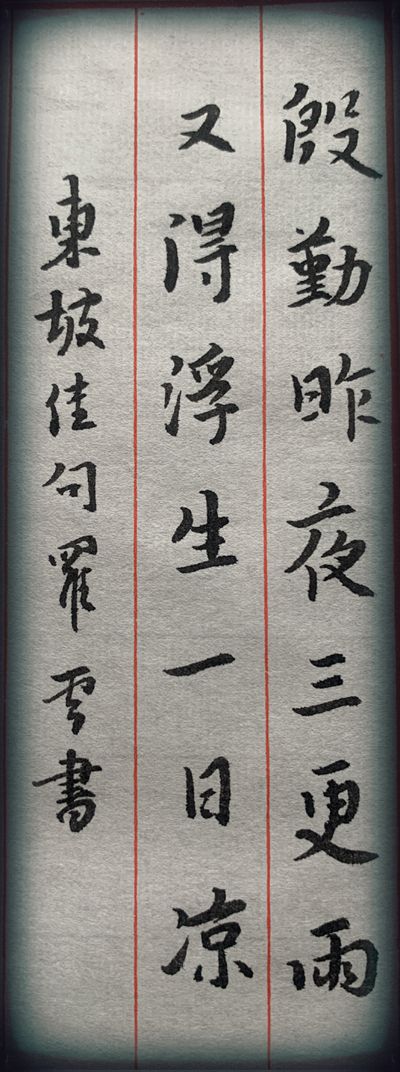 殷勤昨夜三更雨
又得浮生一日凉
東坡佳句羅雲書